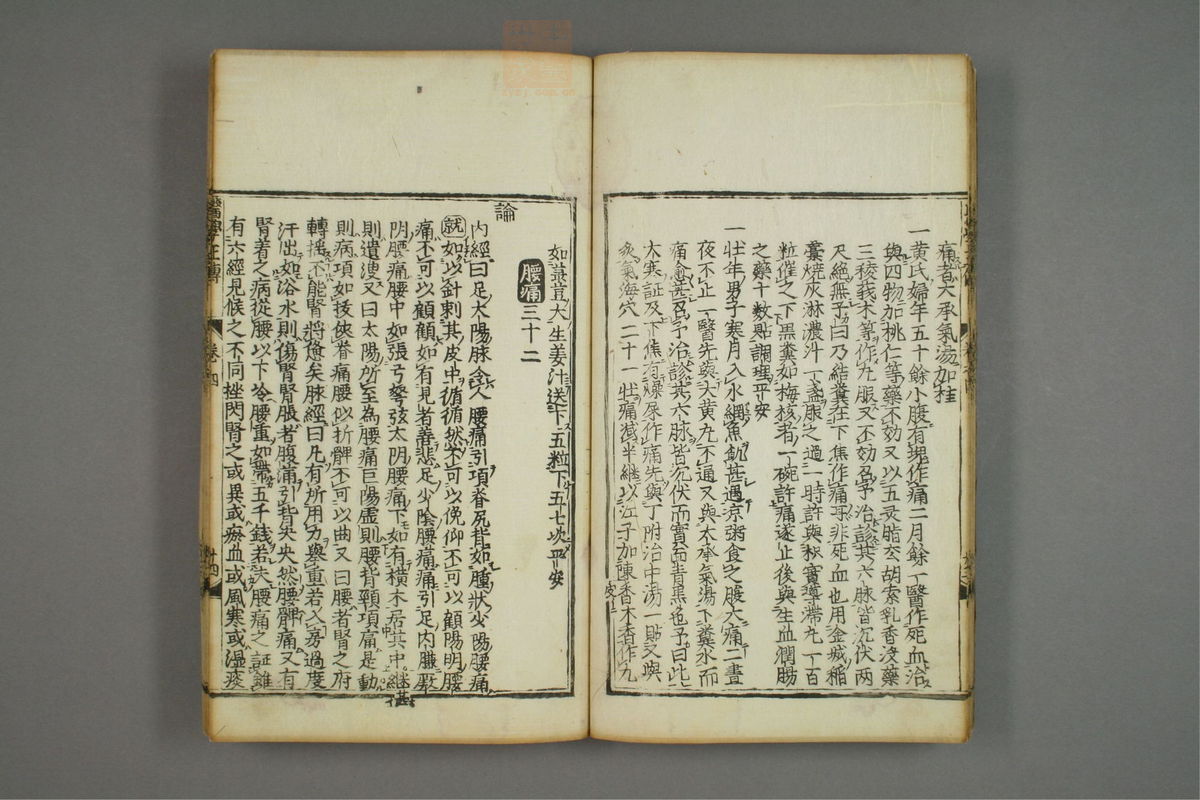 痛者大承氣湯加桂
一黃氏婦年五十餘小腹有塊作痛二月餘一醫作死血治
與四物加桃仁等藥不効又以五灵脂玄胡索乳香沒藥
三稜莪朮等作丸服又不効召予治診其六脉皆沉伏兩
尺絶無予曰乃結糞在下焦作痛耳非死血也用金城稻
藁燒灰淋濃汁一盞服之過一時許與枳實導滯丸一百
粒催之下黒糞如梅核者一碗許痛遂止後與生血潤腸
之藥十数貼調理平安
一壮年男子寒月入水網魚飢甚過凉粥食之腹大痛二晝
夜不止一醫先與大黄丸不通又與大承氣湯下糞水而
痛愈甚召予治診其六脉皆沉伏而實面青黒也予曰此
大寒証及下焦有燥屎作痛先與丁附治中湯一貼又與
灸氣海穴二十一壮痛减半継以江子加陳皮香木香作丸
如萞荳大生姜汁送下五粒下五七次平安
腰痛三十二
論
内經曰足太陽脉令人腰痛引項脊尻背如腫狀少陽腰痛
就如以針刺其皮中循循然不可以俛仰不可以顧陽明腰
痛不可以顧顧如有見者善悲足少陰腰痛痛引足内臁厥
阴腰痛腰中如張弓弩弦太阴腰痛下如有横木居其中甚継
則遺溲又曰太陽所至為腰痛巨陽虚則腰背頸項痛是動
則病項如拔俠脊痛腰似折髀不可以曲又曰腰者腎之府
轉揺不能腎將憊矣脉經曰凡有所用力舉重若入房過度
汗出如浴水則傷腎腎脹者腹滿引背央央然腰髀痛又有
腎着之病從腰以下冷腰重如帶五千銭者夫腰痛之証雖
有六經見候之不同挫閃腎之或異或瘀血或風寒或湿痰